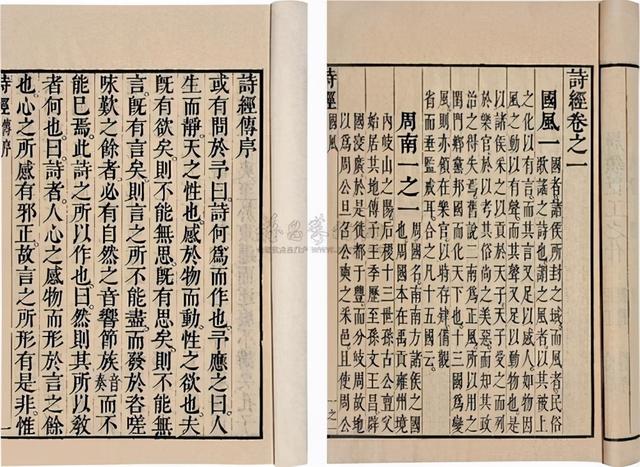 詩經傳序
或有問於予曰詩何爲而作也予應之曰人
生而靜天之性也感於物而動性之欲也夫
既有欲矣則不能無思既有思矣則不能無
言既有言矣則言之所不能盡而發於咨嗟
咏歎之餘者必有自然之音響節族音奏而不
能已焉此詩之所以作也曰然則其所以敎
者何也曰詩者人心之感物而形於言之餘
也心之所感有邪正故言之所形有是非惟
詩經 傳序 一
詩經卷之一
國風一 國者諸侯所封之域而風者民俗
歌謠之詩也謂之風者以其被上
之化以有言而其言又足以感人如物因
風之動以有聲而其聲又足以動物也是
以諸侯采之以貢於天子天子受之而列
於樂官於以考其俗尚之美惡而知其政
治之得失焉舊說二南爲正風所以用之
閨門鄉黨邦國而化天下也十三國爲變
風則亦領在樂官以時存肄備觀
省而垂監戒耳合之凡十五國云
周南一之一 周國名南南方諸侯之國
也周國本在禹貢雍州境
內岐山之陽后稷十三世孫古公亶父
始居其地傳子王季歷至孫文王昌辟
國寖廣於是徙都于豐而分岐周故地
以爲周公旦召公奭之采邑且使周公
詩經 國風 一之一